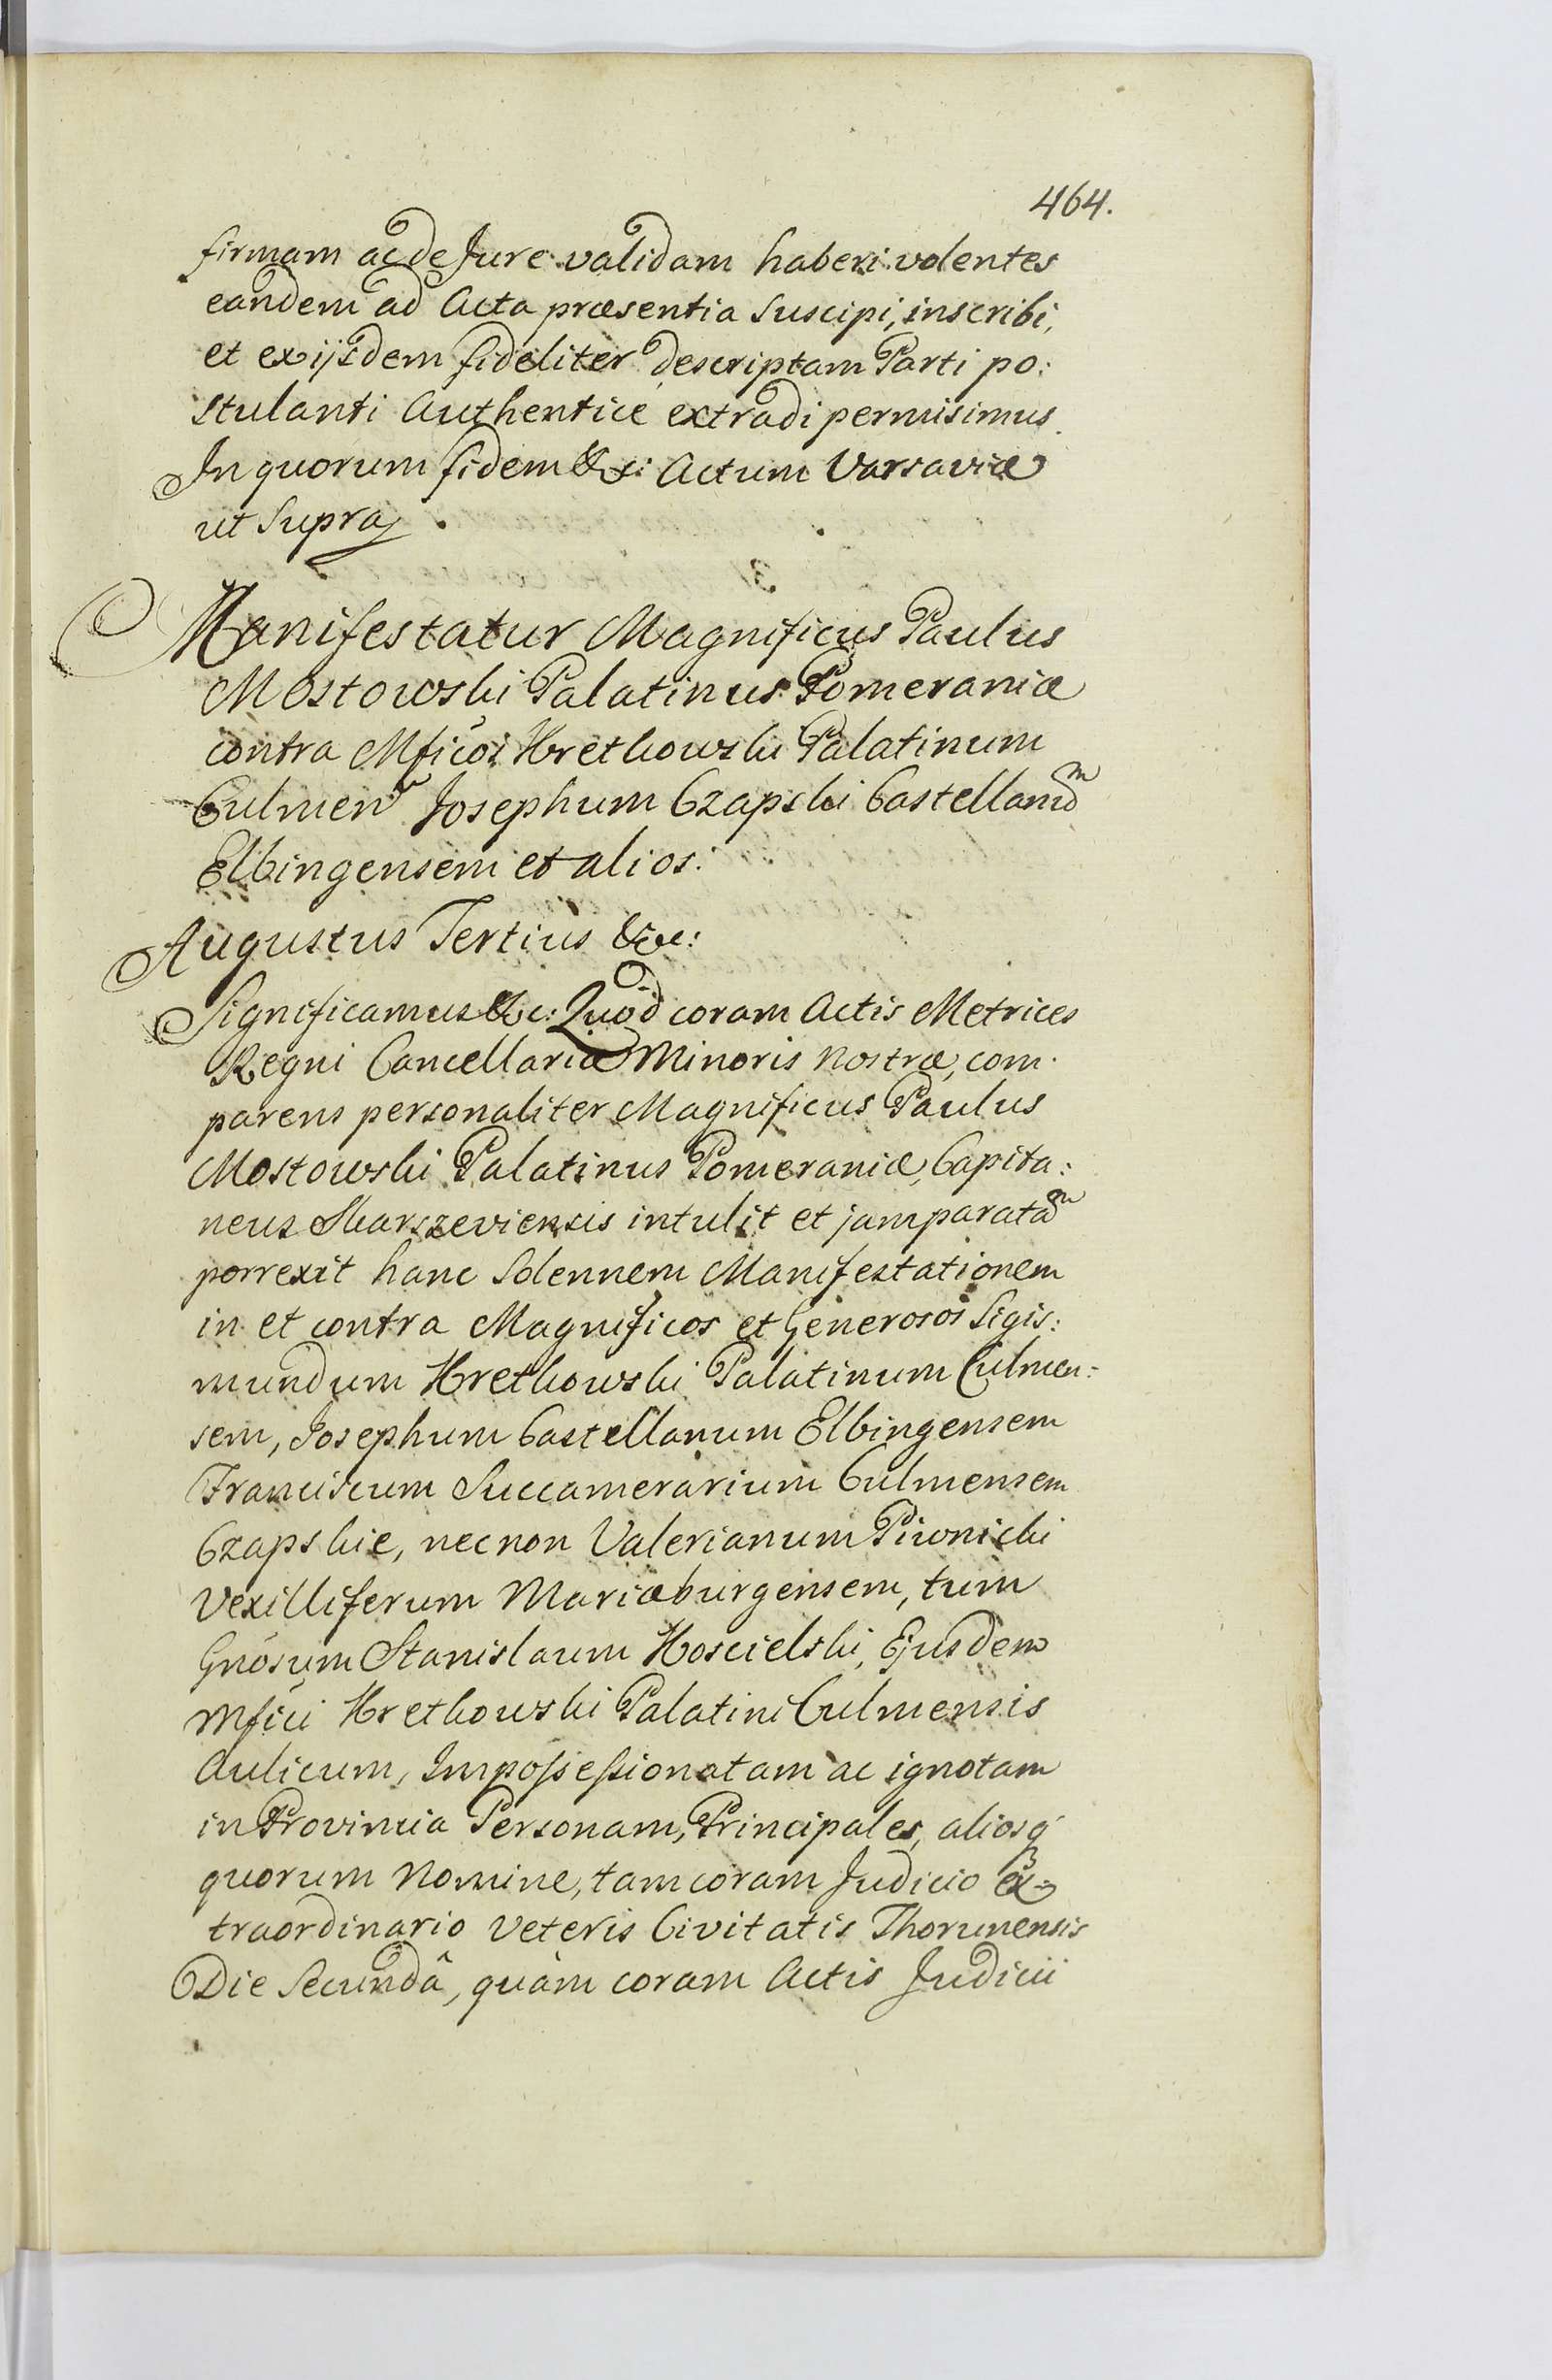 464.
firmam ac de Jure validam haberi volentes
eandem ad Acta præsentia suscipi, inscribi,
et ex ijsdem fideliter descriptam Parti po:
stulanti Authentice extradi permisimus.
In quorum fidem &c: Actum Varsaviæ
ut supra.
Manifestatur Magnificus Paulus
Mostowski Palatinus Pomeraniæ
contra Mficos Kretkowski Palatinum
Culmen Josephum Czapski Castellanũm
Elbingensem et alios.
Augustus Tertius &c:
Significamus &c: Quod coram Actis Metrices
Regni Cancellariæ Minoris nostræ, com
parens personaliter Magnificus Paulus
Mostowski Palatinus Pomeraniæ, Capita:
neus Skarszeviensis intulit et jam paratam
porrexit hanc Solennem Manifestationem
in et contra Magnificos et Generosos Sigis:
mundum Kretkowski Palatinum Culmen:
sem, Josephum Castellanum Elbingensem
Franciscum Succamerarium Culmensem
Czapskie, necnon Valerianum Piwnicki
Vexilliferum Mariæburgensem, tum
Gnosum Stanislaum Koscielski, Ejusdem
Mfici Kretkowski Palatini Culmensis
Aulicum, Impossessionatam ac ignotam
in Provincia Personam, Principales, aliosq
quorum Nomine, tam coram Judicio ex=
traordinario Veteris Civitatis Thorunensis
Die Secundâ, quàm coram Actis Judicii